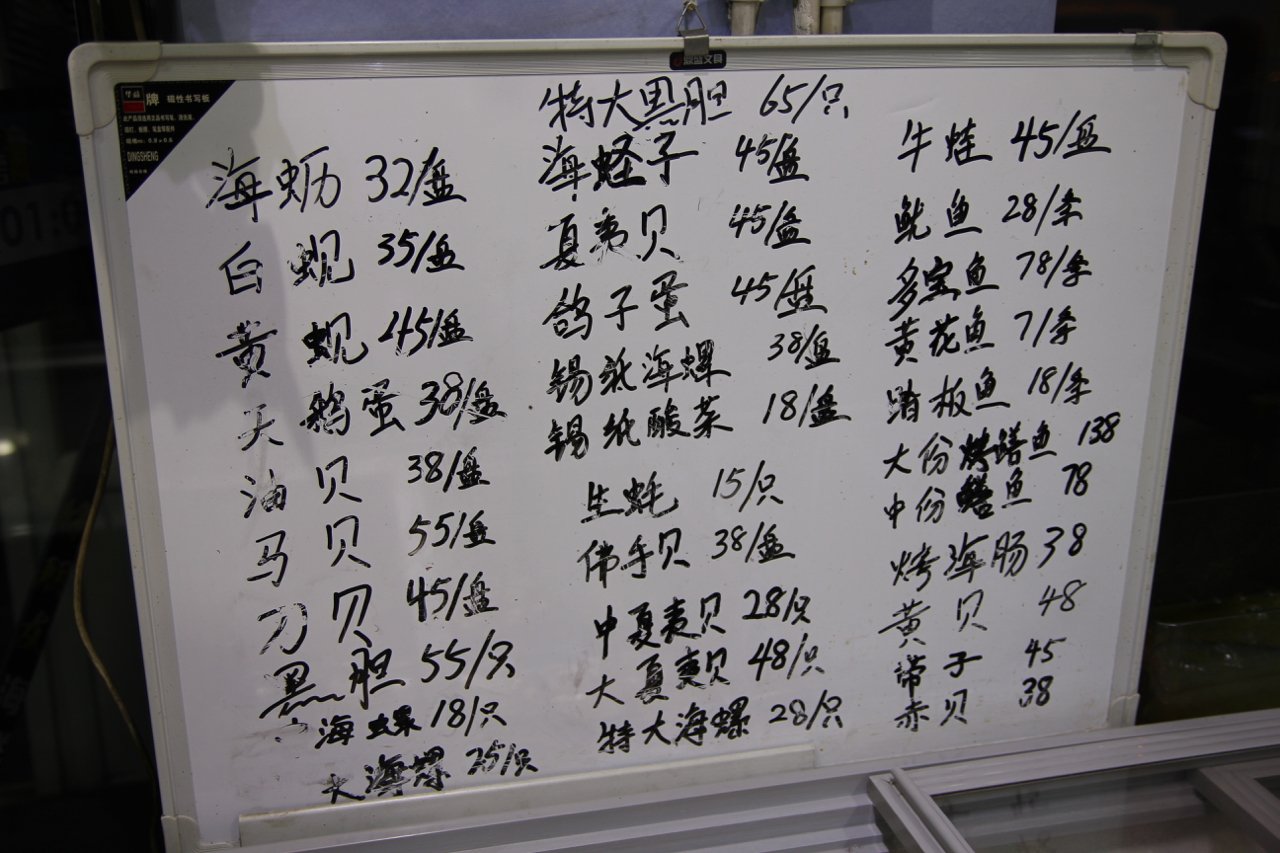 牌 磁性书写板
DINGSHENG
文具
海蛎 32/盘
白蚬 35/盘
黄蚬 45/盘
天鹅蛋 38/盘
油贝 38/盘
马贝 55/盘
刀贝 45/盘
黑胆 55/只
海螺 18/只
大海螺 25/只
特大黑胆 65/只
海蛏子 45/盘
夏夷贝 45/盘
鸽子蛋 45/盘
锡纸海螺 38/盘
锡纸酸菜 18/盘
生蚝 15/只
佛手贝 38/盘
中夏夷贝 28/只
大夏夷贝 48/只
特大海螺 28/只
牛蛙 45/盘
鱿鱼 28/条
多宝鱼 78/条
黄花鱼 7/条
踏板鱼 18/条
大份烤鳝鱼 138
中份鳝鱼 78
烤海肠 38
黄贝 48
带子 45
赤贝 38